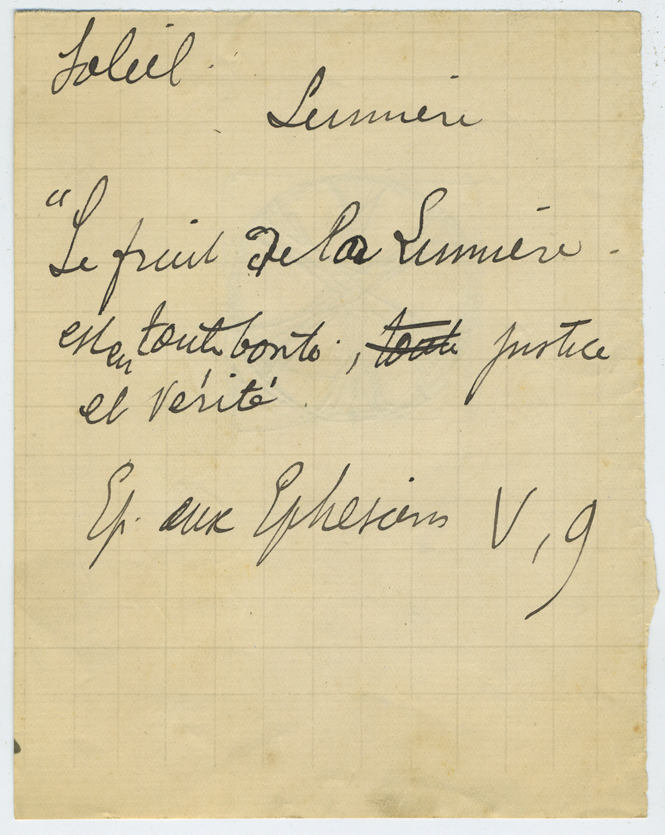 Soleil.
Lumière
"Le fruit de la Lumière
est en toute bonté, toute justice
et vérité
Ep. aux Ephesiens V, 9